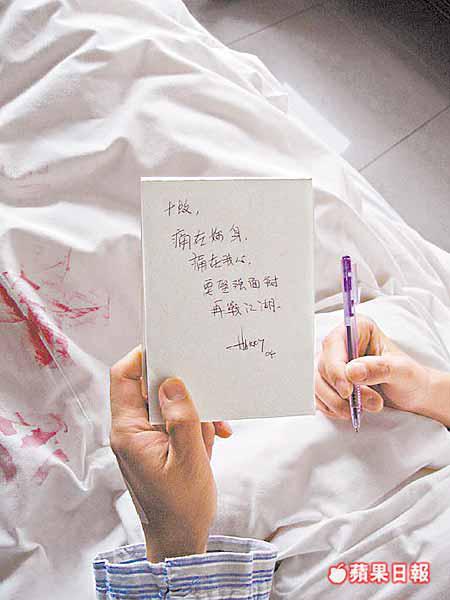 十蚊,
痛在妳身,
痛在我心.
要堅強面對
再戰江湖.
04
蘋果日報